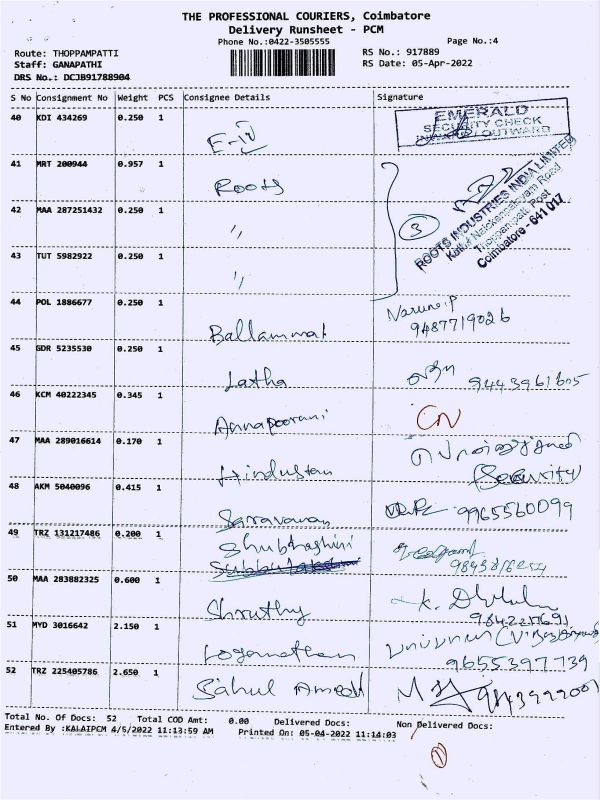 THE PROFESSIONAL COURIERS, Coimbatore
Delivery Runsheet - PCM
Phone No.:0422-3505555
Page No.:4
Route: THOPPAMPATTI
RS No.: 917889
Staff: GANAPATHI
RS Date: 05-Apr-2022
DRS No.: DCJB91788904
S No Consignment No Weight PCS Consignee Details Signature
40 KDI 434269 0.250 1
EMERALD
SECURITY CHECK
INWARD / OUTWARD
41 MRT 200944 0.957 1 Roots
ROOTS INDUSTRIES INDIA LIMITED
Thoppampatti Post
Coimbatore - 641 017
3
42 MAA 287251432 0.250 1 "
43 TUT 5982922 0.250 1 "
44 POL 1886677 0.250 1 Ballammal Naruna.P
9487719026
45 GDR 5235530 0.250 1 Latha 9443961605
46 KCM 40222345 0.345 1 Annapoorani
47 MAA 289016614 0.170 1 Hindustan
Security
48 AKM 5040096 0.415 1 Saravanan 9965560099
49 TRZ 131217486 0.200 1 Shubhashini
50 MAA 283882325 0.600 1 Shruthy
51 MYD 3016642 2.150 1 Loganathan
9655397739
52 TRZ 225405786 2.650 1 Sahul Ameed
Total No. Of Docs: 52 Total COD Amt: 0.00 Delivered Docs: Non Delivered Docs:
Entered By :KALAIPCM 4/5/2022 11:13:59 AM Printed On: 05-04-2022 11:14:03
1